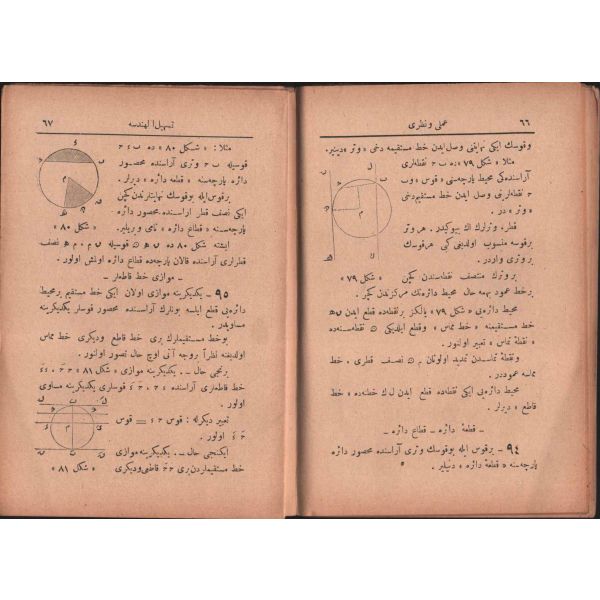 ٦٦
عملی و نظری
و قوسك ایكی نهایتنی وصل ایدن خط مستقیمه دخی « وتر » دینیر.
مثلا « شكل ٧٩ » ده ب ح نقطه‌لری
آراسنده‌كی محیط پارچه‌سنی « قوس » وب
ح نقطه‌لرینی وصل ایدن خط مستقیم دخی
« وتر » در .
قطر ، وترلرك اك بیوكیدر . هر وتر
بر قوسه منسوب اولدیغی كبی هر قوسك
بر وتری واردر .
بر وترك منتصف نقطه‌سندن كچن
« شكل ٧٩ »
بر خط عمود بهمه حال محیط دائره‌نك مركزندن كچر .
محیط دائره‌یی « شكل ٧٩ » یالكز بر نقطه‌ده قطع ایدن
خط مستقیمنه « خط مماس » وقطع ایلدیكی نقطه‌سنه‌ده
« نقطهٔ تماس » تعبیر اولنور .
ونقطهٔ تماسدن تمدید اولونان نصف قطری ، خط
مماسه عموددر .
محیط دائره‌یی ایكی نقطه‌ده قطع ایدن ل ك خطنه‌ده « خط
قاطع » دیرلر .
ــ قطعهٔ دائره ــ قطاع دائره ــ
٩٤ ــ بر قوس ایله بو قوسك وتری آراسنده محصور دائره
پارچه‌سنه « قطعهٔ دائره » دنیلیر .
تسهیل الهندسه
٦٧
مثلا : « شكل ٨٠ » ده ب ء ح
قوسیله ب ح وتری آراسنده محصور
دائره پارچه‌سنه « قطعه دائره » دیرلر .
بر قوس ایله بو قوسك نهایتلرندن كچن
ایكی نصف قطر اراسنده محصور دائره
پارچه‌سنه « قطاع دائره » نامی ویریلیر .
« شكل ٨٠ »
ایشته شكل ٨٠ ده قوسیله نصف
قطرلری آراسنده قالان پارچه‌ده قطاع دائره اولمش اولور .
ــ موازی خط قاطعلر ــ
٩٥ ــ یكدیگرینه موازی اولان ایكی خط مستقیم بر محیط
دائره‌یی قطع ایلسه بونلرك آراسنده محصور قوسلر یكدیگرینه
مساویدر .
بو خط مستقیملرك بری خط قاطع ودیگری خط مماس
اولدیغنه نظراً بروجه آتی اوچ حال تصور اولنور .
برنجی حال ــ یكدیگرینه موازی « شكل ٨١ »
خط قاطعلری آراسنده قوسلری یكدیگرینه مساوی
اولور .
تعبیر دیگرله : قوس = قوس
اولور .
ایكنجی حال ــ یكدیگرینه موازی
خط مستقیملردن بری قاطعی ودیگری
« شكل ٨١ »